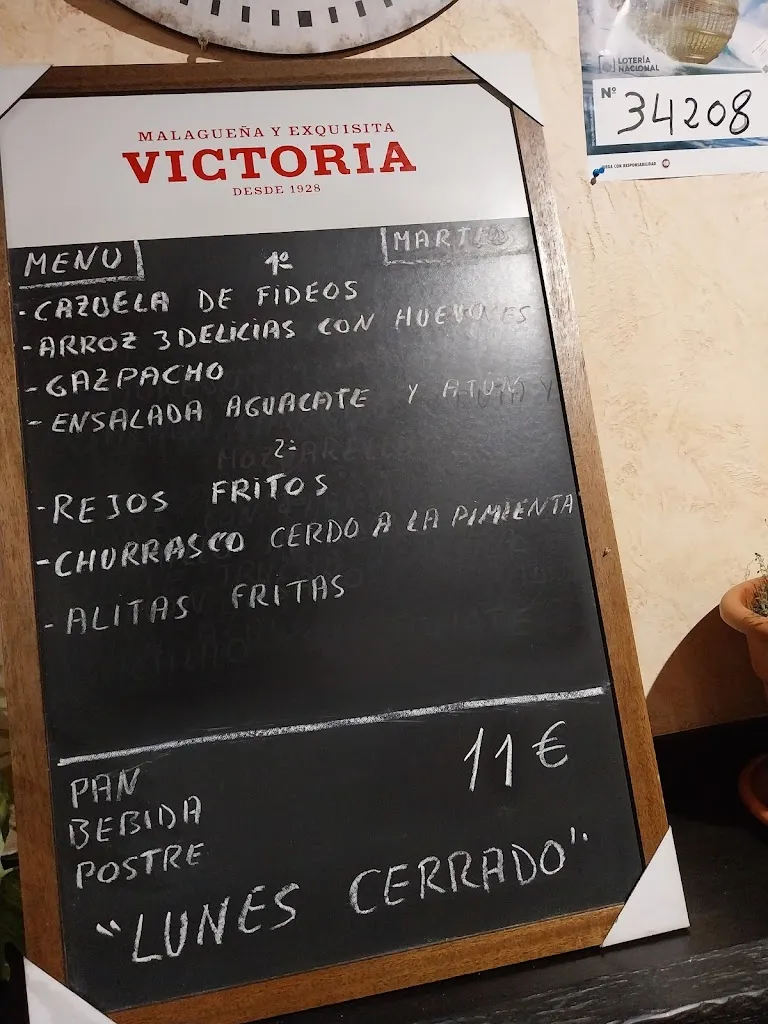 LOTERÍA
NACIONAL
Nº 34208
JUEGA CON RESPONSABILIDAD 18
MALAGUEÑA Y EXQUISITA
VICTORIA
DESDE 1928
MENU 1º MARTES
-CAZUELA DE FIDEOS
-ARROZ 3 DELICIAS CON
-GAZPACHO
-ENSALADA AGUACATE Y ATUN
2º
-REJOS FRITOS
-CHURRASCO CERDO A LA PIMIENTA
-ALITAS FRITAS
PAN 11€
BEBIDA
POSTRE
"LUNES CERRADO"